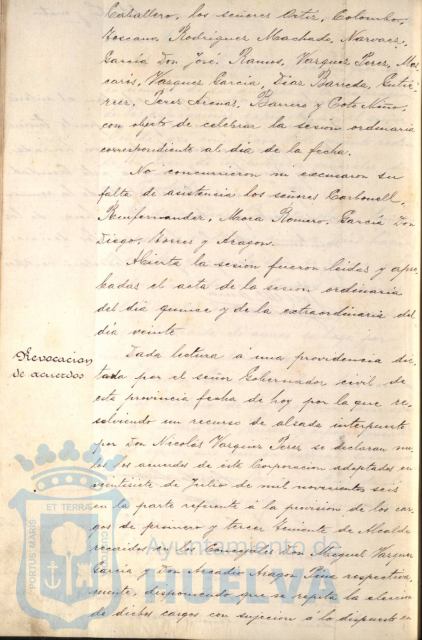 Caballero, los señores Ortiz, Colombo,
Toscano, Rodriguez Machado, Narvaez,
García Don José, Ramos, Vazquez Perez, Mas-
carós, Vazquez García, Diaz Barreda, Gutie-
rrez, Perez Arenas, Barrero y Coto Mñno,
con objeto de celebrar la sesion ordinaria
correspondiente al dia de la fecha.
No concurrieron ni excusaron su
falta de asistencia los señores Carbonell,
Renfernander, Mora Romero, García Don
Diego, Torres y Aragon.
Abierta la sesion fueron leidas y apro-
badas el acta de la sesion ordinaria
del dia quince y de la extraordinaria del
día veinte
Revocacion
de acuerdos
Dada lectura á una providencia dic-
tada por el señor Gobernador civil de
esta provincia fecha de hoy por la que re-
solviendo un recurso de alzada interpuesto
por Don Nicolás Vazquez Perez se declaran nu-
los los acuerdos de esta Corporacion adoptados en
veintisiete de Julio de mil novecientos seis
en la parte referente á la provision de los car-
gos de primero y tercer Teniente de Alcalde
recaidos en los Concejales Don Miguel Vazquez
García y Don Arcadio Aragon Piña respectiva-
mente, disponiendo que se repita la eleccion
de dichos cargos con sujecion á lo dispuesto en
PORTUS MARIS ET TERRAE CUSTODIA
Ayuntamiento de
HUELVA